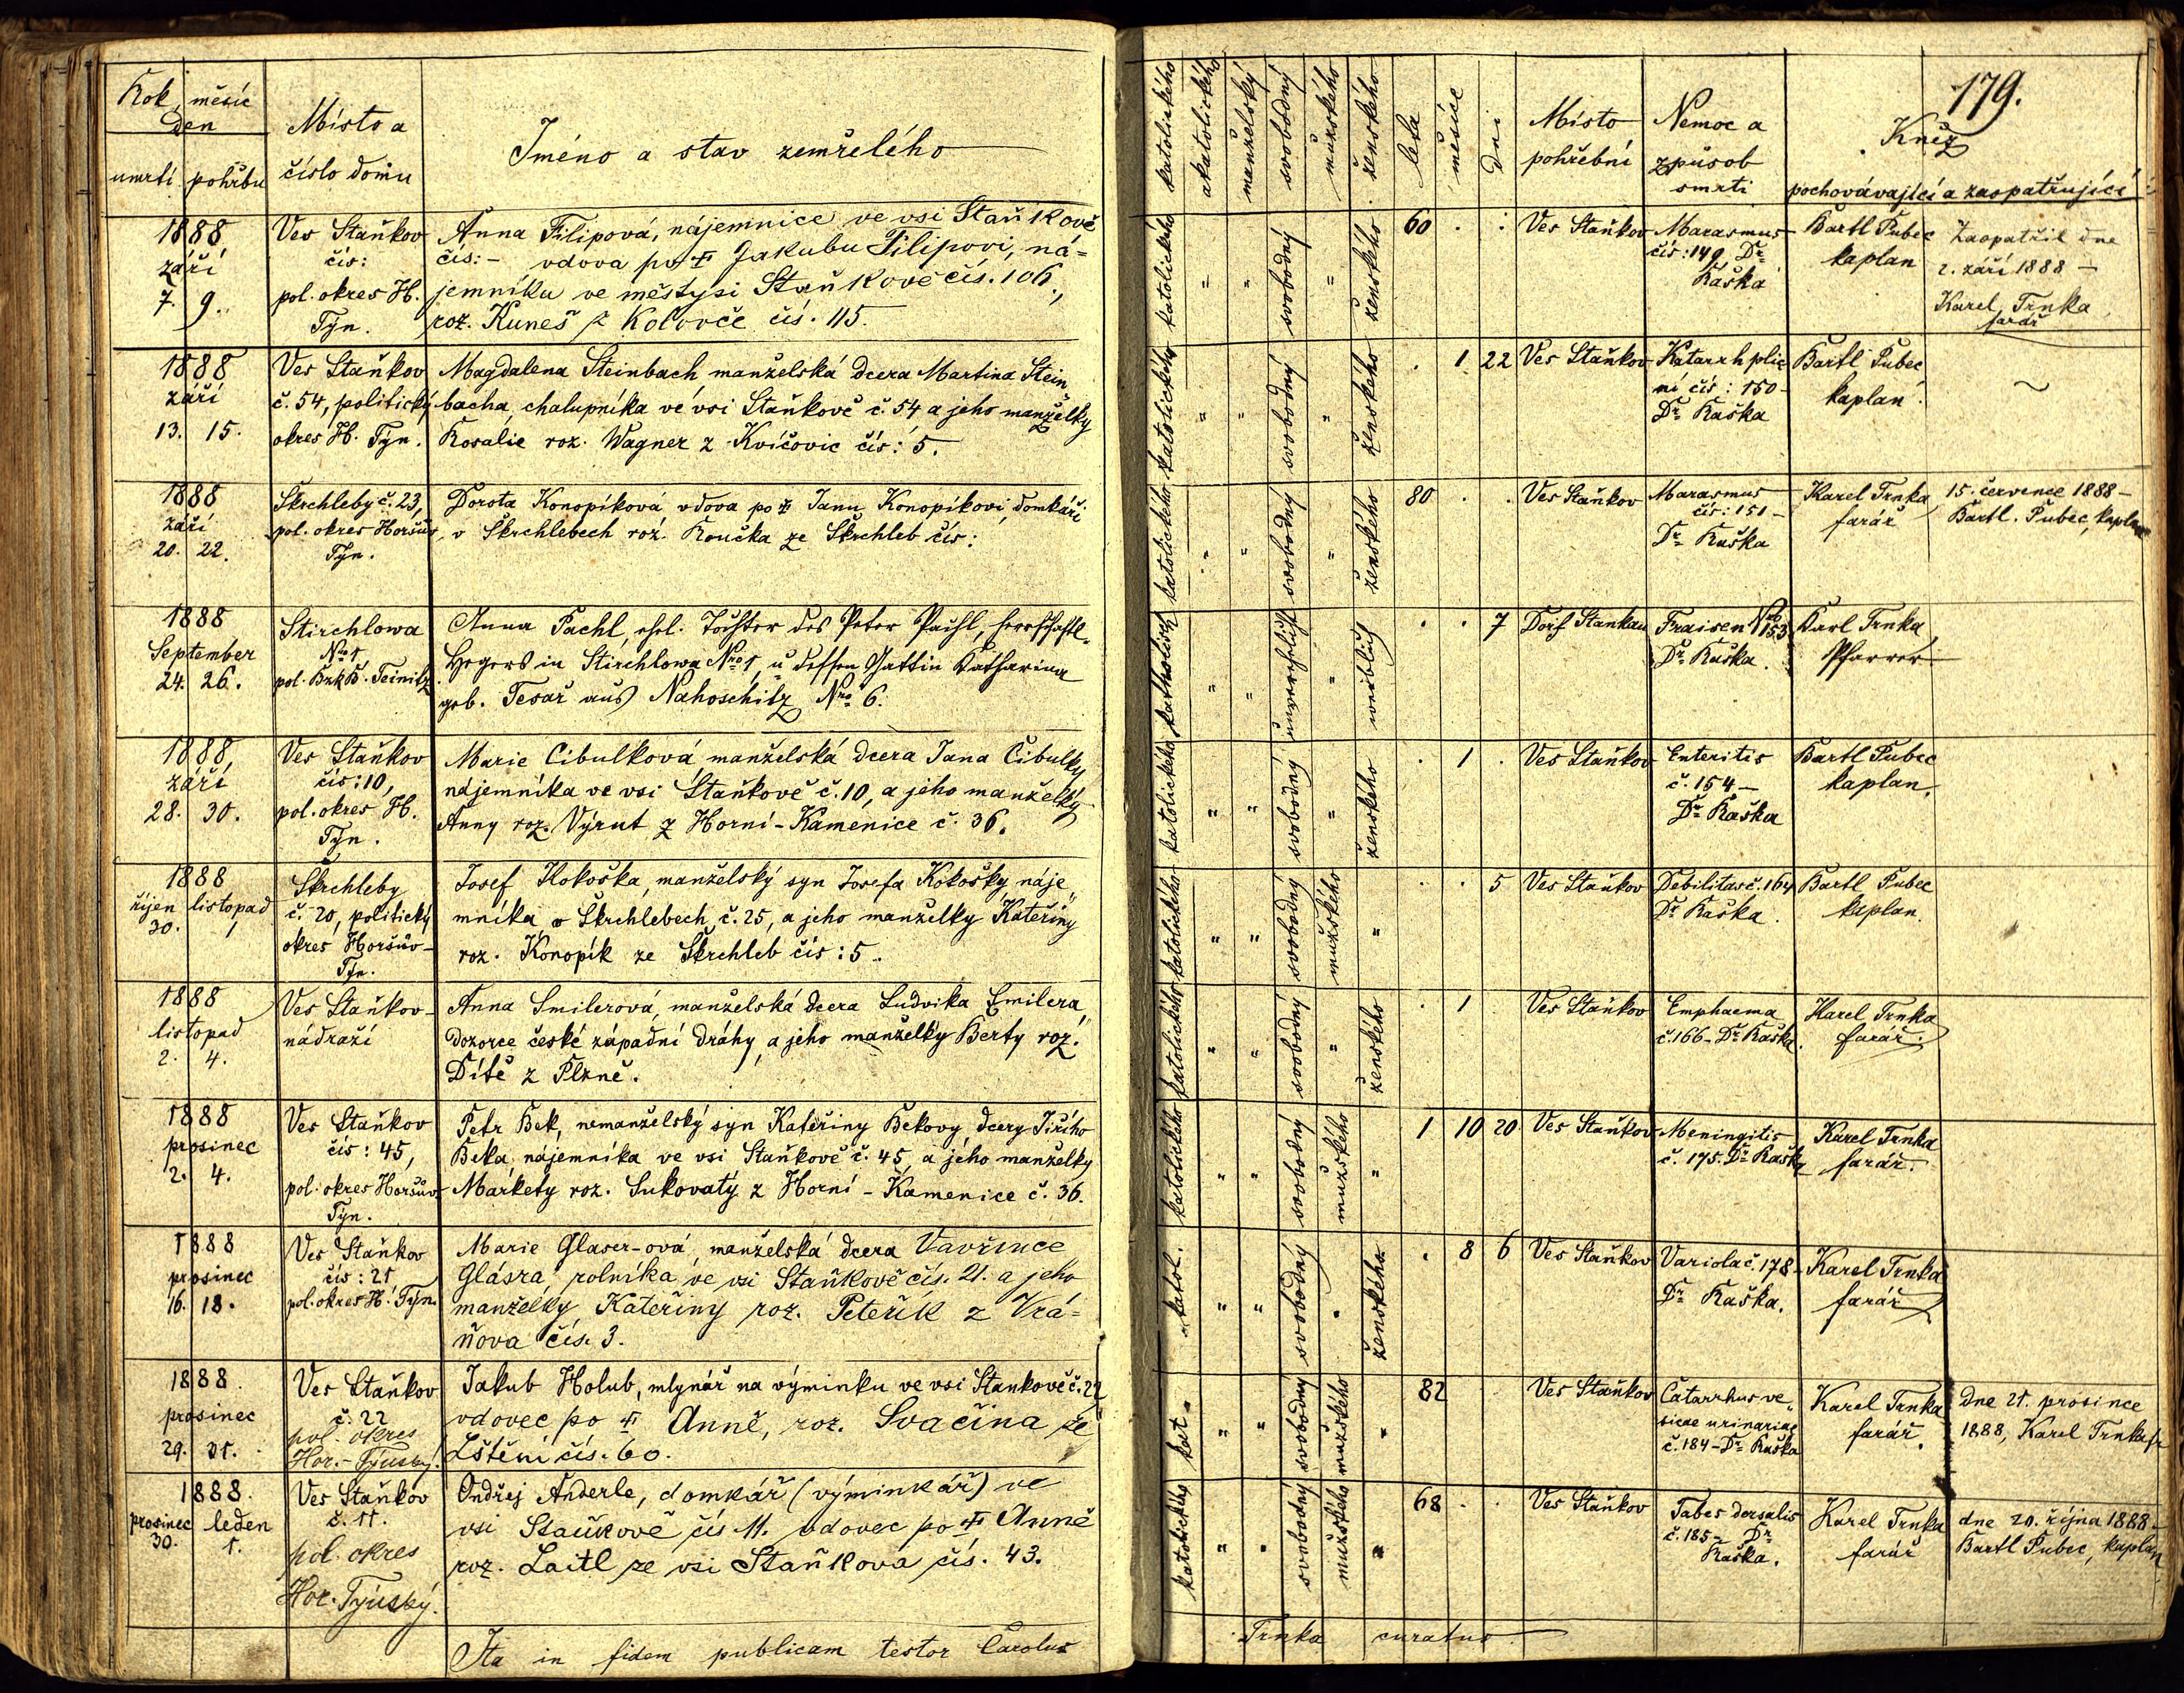 Rok, měsíc
den
Místo a
Jméno a stav zemřelého
umrtí pohřbu
číslo domu
1888
září
7. 9.
Ves Staňkov
čís:
pol. okres H.
Týn.
Anna Filipová, nájemnice ve vsi Staňkově
čís: - vdova po † Jakubu Filipovi, ná-
jemníku ve městysi Staňkově čís. 106.,
roz. Kuneš z Kolovče čís. 115.
1888
září
13. 15.
Ves Staňkov
č. 54, politický
okres H. Týn.
Magdalena Steinbach manželská dcera Martina Stein
bacha, chalupníka ve vsi Staňkově č. 54 a jeho manželky
Rosalie roz. Wagner z Kvíčovic čís: 5.
1888
září
20. 22.
Škrchleby č. 23,
pol. okres Horšův
Týn.
Dorota Konopíková vdova po † Janu Konopíkovi, domkáři
v Škrchlebech roz. Koučka ze Škrchleb čís:
1888
September
24. 26.
Stirchlowa
Nro 1
pol. Bzk B. Teinitz
Anna Pachl, ehel. Tochter des Peter Pachl, herrschaftl.
Hegers in Stirchlowa Nro 1, u dessen Gattin Katharina
geb. Tesař aus Nahoschitz Nro 6.
1888,
září
28. 30.
Ves Staňkov
čís: 10,
pol. okres H.
Týn.
Marie Cibulková, manželská dcera Jana Cibulky
nájemníka ve vsi Staňkově č. 10, a jeho manželky
Anny roz. Výrut z Horní-Kamenice č. 36.
1888
říjen listopad
30. 1
Škrchleby
č. 20, politický
okres Horšův-
Týn.
Josef Kokoška, manželský syn Josefa Kokošky náje
mníka v Škrchlebech č. 25, a jeho manželky Kateřiny
roz. Konopík ze Škrchleb čís: 5.
1888
listopad
2. 4.
Ves Staňkov-
nádraží
Anna Smilerová, manželská dcera Ludvika Smilera,
dozorce české západní dráhy, a jeho manželky Berty roz.
Dítě z Plzně.
1888
prosinec
2. 4.
Ves Staňkov
čís: 45,
pol. okres Horšův
Týn.
Petr Bek, nemanželský syn Kateřiny Bekovy dcery Jiřího
Beka, nájemníka ve vsi Staňkově č. 45, a jeho manželky
Markety roz. Sukovatý z Horní-Kamenice č. 36.
1888
prosinec
16. 18.
Ves Staňkov
čís: 21
pol. okres H. Týn.
Marie Glaser-ová, manželská dcera Vavřince
Glásra, rolníka ve vsi Staňkově čís. 21. a jeho
manželky Kateřiny roz. Peteřík z Vrá-
ňova čís. 3.
1888.
prosinec
29. 31.
Ves Staňkov
č. 22
pol. okres
Hor.-Týnský.
Jakub Holub, mlynář na výminku ve vsi Staňkově č. 22,
vdovec po † Anně, roz. Svačina ze
Lštění čís. 60.
1888.
prosinec leden
30. 1.
Ves Staňkov
č. 11.
pol. okres
Hor. Týnský.
Ondřej Anderle, domkář (výminkář) ve
vsi Staňkově čís. 11. vdovec po † Anně
roz. Laitl ze vsi Staňkova čís. 43.
Ita in fidem publicam testor Carolus
179.
katolického
akatolického
manželský
svobodný
mužského
ženského
leta
měsíce
dni
Místo
pohřební
Nemoc a
způsob
smrti
Kněz
pochovávající a zaopatřující
katolického " " svobodný " ženského 60 . .
Ves Staňkov
Marasmus
čís: 149, Dr
Raška
Bartl Pubec
kaplan
Zaopatřil dne
2. září 1888 -
Karel Trnka,
farář
katolického " " svobodný " ženského . 1 22
Ves Staňkov
Katarrh plic
ní čís: 150
Dr Raška
Bartl Pubec
kaplan.
katolického " " svobodný " ženského 80 . .
Ves Staňkov
Marasmus
čís: 151 -
Dr Raška
Karel Trnka
farář
15. července 1888 -
Bartl. Pubec, kaplan
katholisch " " unverehelicht " weiblich . . 7
Dorf Stankau
Fraisen Nro 153
Dr Raška.
Karl Trnka,
Pfarrer
katolického " " svobodný " ženského . 1 .
Ves Staňkov
Enteritis
č. 154 -
Dr Raška
Bartl Pubec
kaplan.
katolického " " svobodný mužského " . . 5
Ves Staňkov
Debilitas č. 164
Dr Raška.
Bartl Pubec
kaplan.
katolického " " svobodný " ženského . 1
Ves Staňkov
Emphaema
č. 166 - Dr Raška.
Karel Trnka
farář.
katolického " " svobodný mužského " 1 10 20
Ves Staňkov
Meningitis
č. 175. Dr Rašky
Karel Trnka
farář.
katol. " " svobodný " ženského . 8 6
Ves Staňkov
Variola č. 178
Dr Raška.
Karel Trnka
farář
kat. " " svobodný mužského " 82
Ves Staňkov
Catarrhus ve
sicae urinariae
č. 184 - Dr Raška
Karel Trnka
farář.
Dne 21. prosince
1888, Karel Trnka fr
katolického " " svobodný mužského " 68 . .
Ves Staňkov
Tabes dorsalis
č. 185 - Dr
Raška.
Karel Trnka
farář
dne 20. října 1888 -
Bartl Pubec, kaplan
Trnka curatus